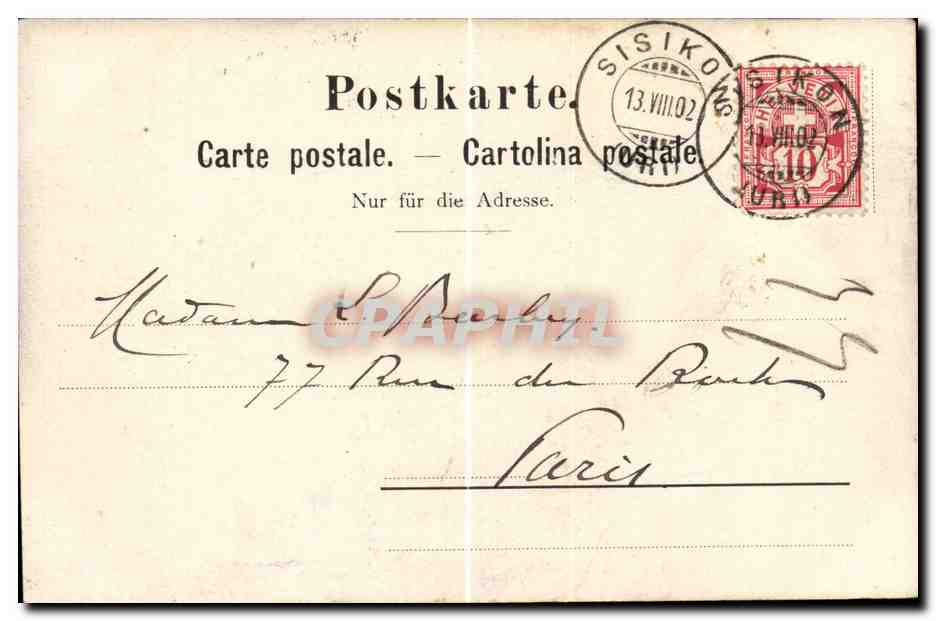 Postkarte.
Carte postale. — Cartolina postale.
Nur für die Adresse.
SISIKON
13.VIII.02
URI
SISIKON
13.VIII.02
URI
HELVETIA
10
Madame L.
CPARPHIL
77 Rue du
Paris